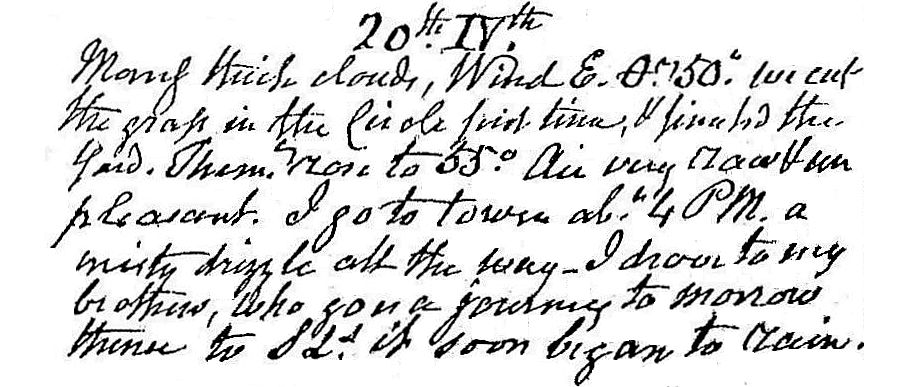 20th. IVth
Morng thick clouds, Wind E. 50° we cut
the grass in the Circle first time, & finishd the
Yard. Therm. rose to 55° Air very raw & un
pleasant. I go to town ab.t 4 PM. a
misty drizzle all the way - I drove to my
brothers, who go on a journey to morrow
thence to it soon began to rain.